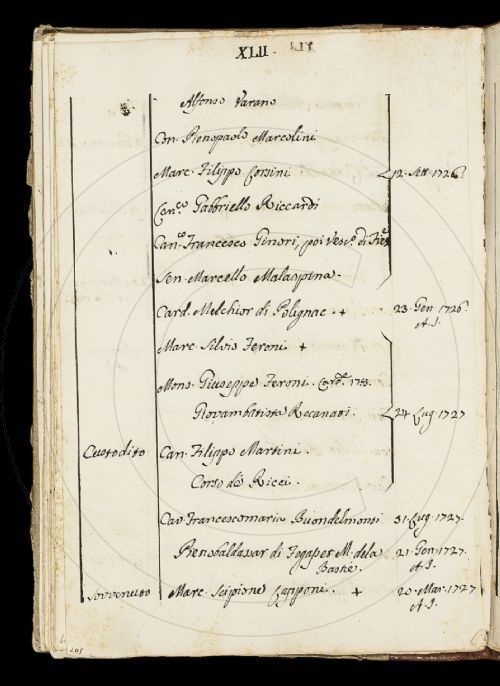 XLII.
Alfonso Varano
Con. Pietropaolo Marcolini
Marc. Filippo Corsini 12. Sett. 1726
Can.co Gabbriello Riccardi
Can.co Francesco Ginori, poi Vesc.o di Fies.
Sen. Marcello Malaspina.
Card. Melchior di Polignac. + 23. Gen. 1726.
A. I.
Marc. Silvio Feroni +
Mons. Giuseppe Feroni. Card.e 1753.
Giovambatista Recanati. 24 Lug. 1727
Custodito Can. Filippo Martini.
Corso de Ricci.
Cav. Francescomaria Buondelmonti 31. Lug. 1727.
M. dela 21. Gen. 1727.
Bastie. A. I.
Sovvenuto Marc. Scipione Capponi. + 20. Mar. 1727
A. I.